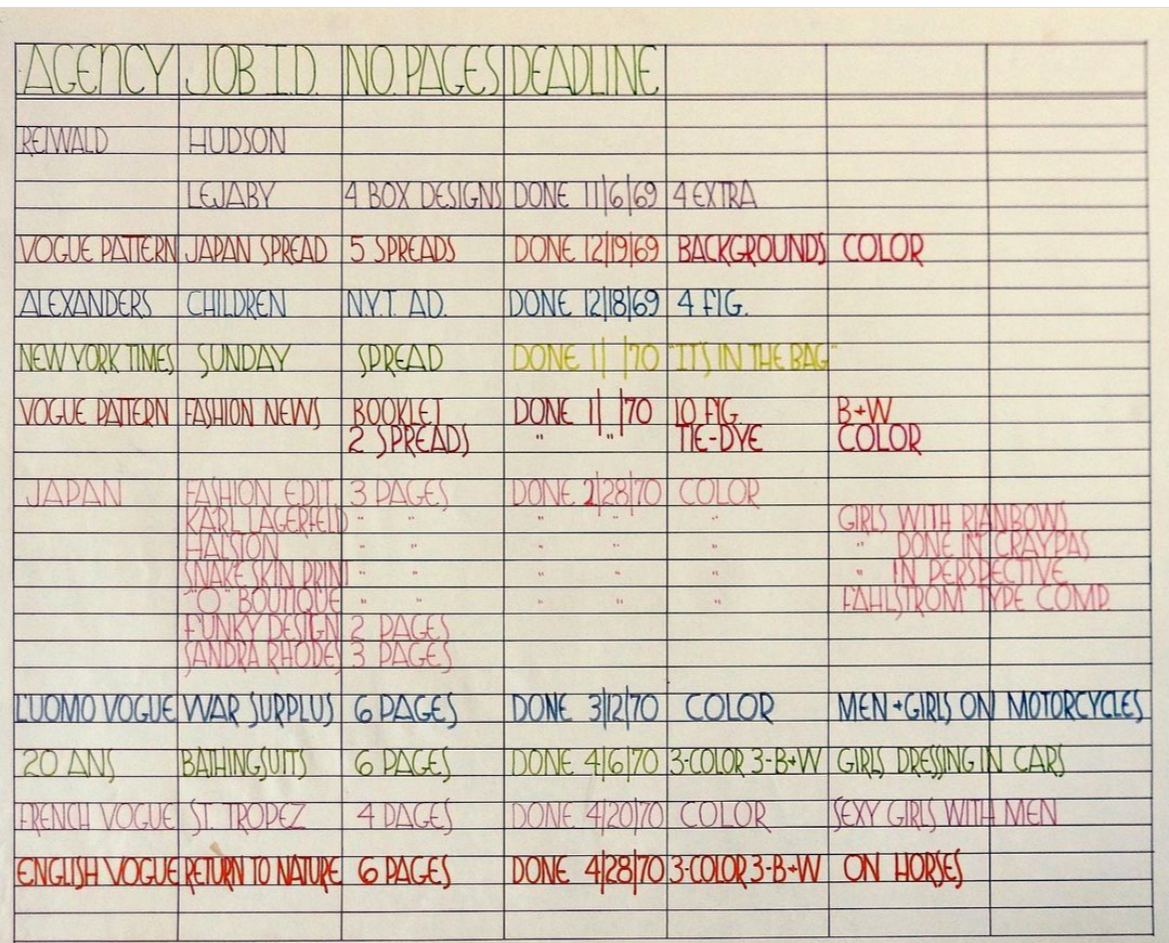 AGENCY JOB I.D. NO. PAGES DEADLINE
REIWALD HUDSON
LEJABY 4 BOX DESIGNS DONE 11/6/69 4 EXTRA
VOGUE PATTERN JAPAN SPREAD 5 SPREADS DONE 12/19/69 BACKGROUNDS COLOR
ALEXANDERS CHILDREN N.Y.T. AD. DONE 12/18/69 4 FIG.
NEW YORK TIMES SUNDAY SPREAD DONE 1/ /70 "IT'S IN THE BAG"
VOGUE PATTERN FASHION NEWS BOOKLET DONE 1/ /70 10 FIG. B+W
2 SPREADS " " TIE-DYE COLOR
JAPAN FASHION EDIT. 3 PAGES DONE 2/28/70 COLOR
KARL LAGERFELD " " " " " GIRLS WITH RIANBOWS
HALSION " " " " " " DONE IN CRAYPAS
SNAKE SKIN PRINT " " " " " " IN PERSPECTIVE
"O" BOUTIQUE " " " " " FAHLSTROM TYPE COMP.
FUNKY DESIGN 2 PAGES
SANDRA RHODES 3 PAGES
L'UOMO VOGUE WAR SURPLUS 6 PAGES DONE 3/12/70 COLOR MEN + GIRLS ON MOTORCYCLES
20 ANS BATHINGSUITS 6 PAGES DONE 4/6/70 3-COLOR 3-B+W GIRLS DRESSING IN CARS
FRENCH VOGUE ST. TROPEZ 4 PAGES DONE 4/20/70 COLOR SEXY GIRLS WITH MEN
ENGLISH VOGUE RETURN TO NATURE 6 PAGES DONE 4/28/70 3-COLOR 3-B+W ON HORSES